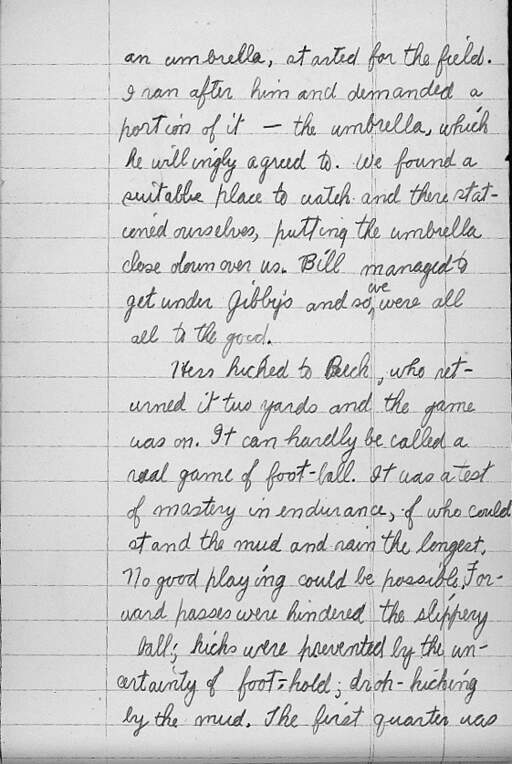 an umbrella, started for the field.
I ran after him and demanded a
portion of it — the umbrella, which
he willingly agreed to. We found a
suitable place to watch and there stat-
ioned ourselves, putting the umbrella
close down over us. Bill managed to
get under Gibby's and so, we were all
all to the good.
Herr kicked to Beck, who ret-
urned it two yards and the game
was on. It can hardly be called a
real game of foot-ball. It was a test
of mastery in endurance, of who could
stand the mud and rain the longest.
No good playing could be possible. For-
ward passes were hindered the slippery
ball; kicks were prevented by the un-
certainty of foot-hold; drop-kicking
by the mud. The first quarter was